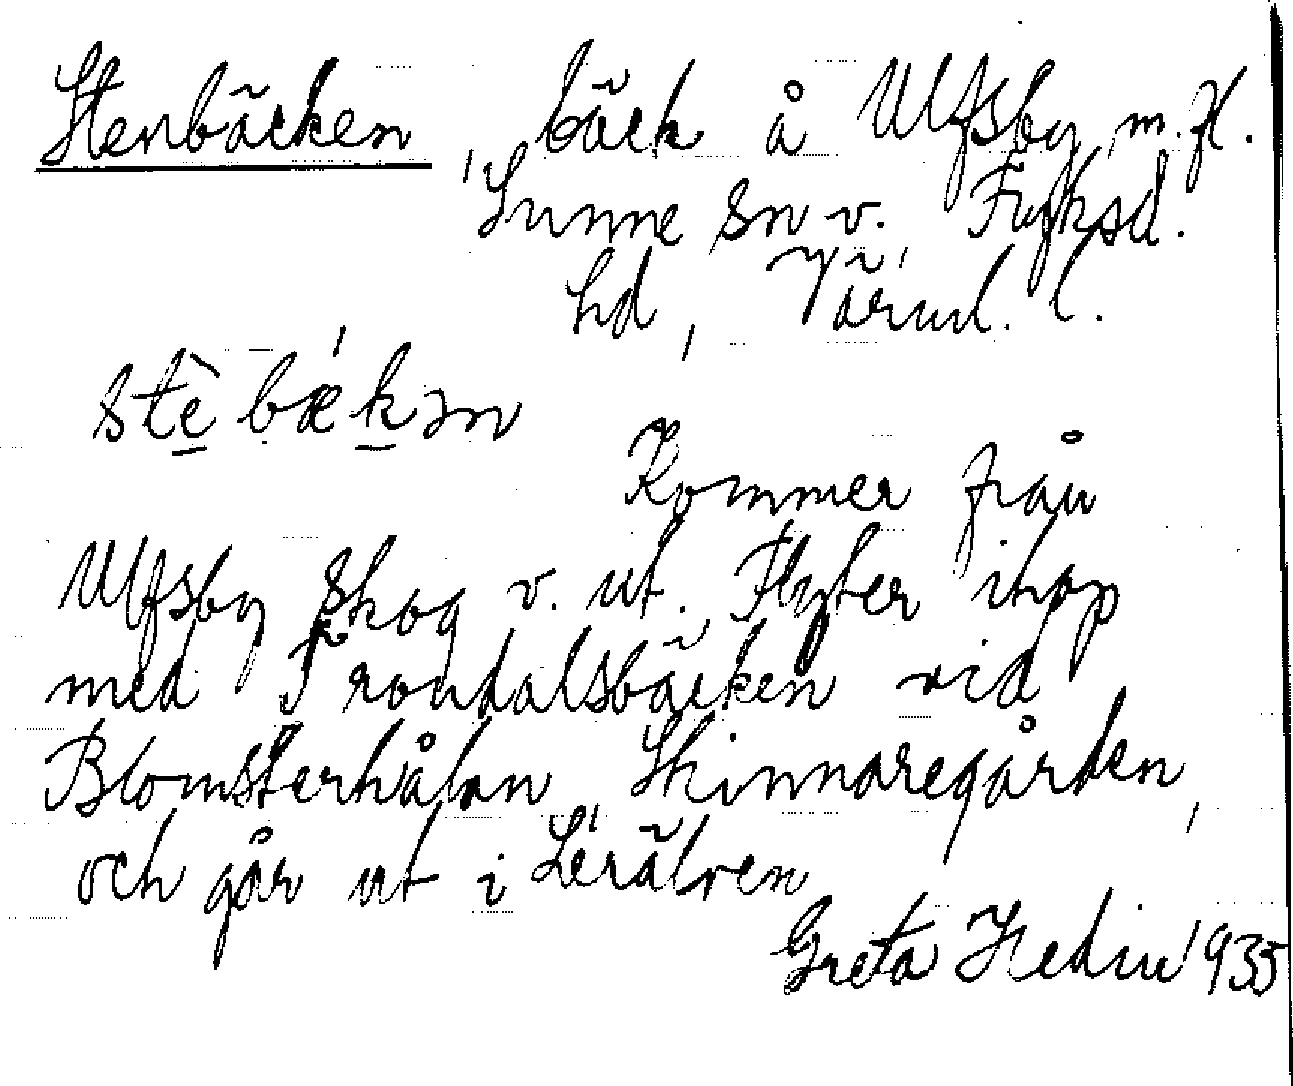 Stenbäcken, bäck å Ulfsby m. fl.
Sunne sn v. Fryksd.
hd, Värml. l.
stè bǽkən
Kommer från
Ulfsby skog v. ut. Flyter ihop
med Trondalsbäcken vid
Blomsterhålan, Skinnaregården,
och går ut i Lerälven
Greta Hedin 1935